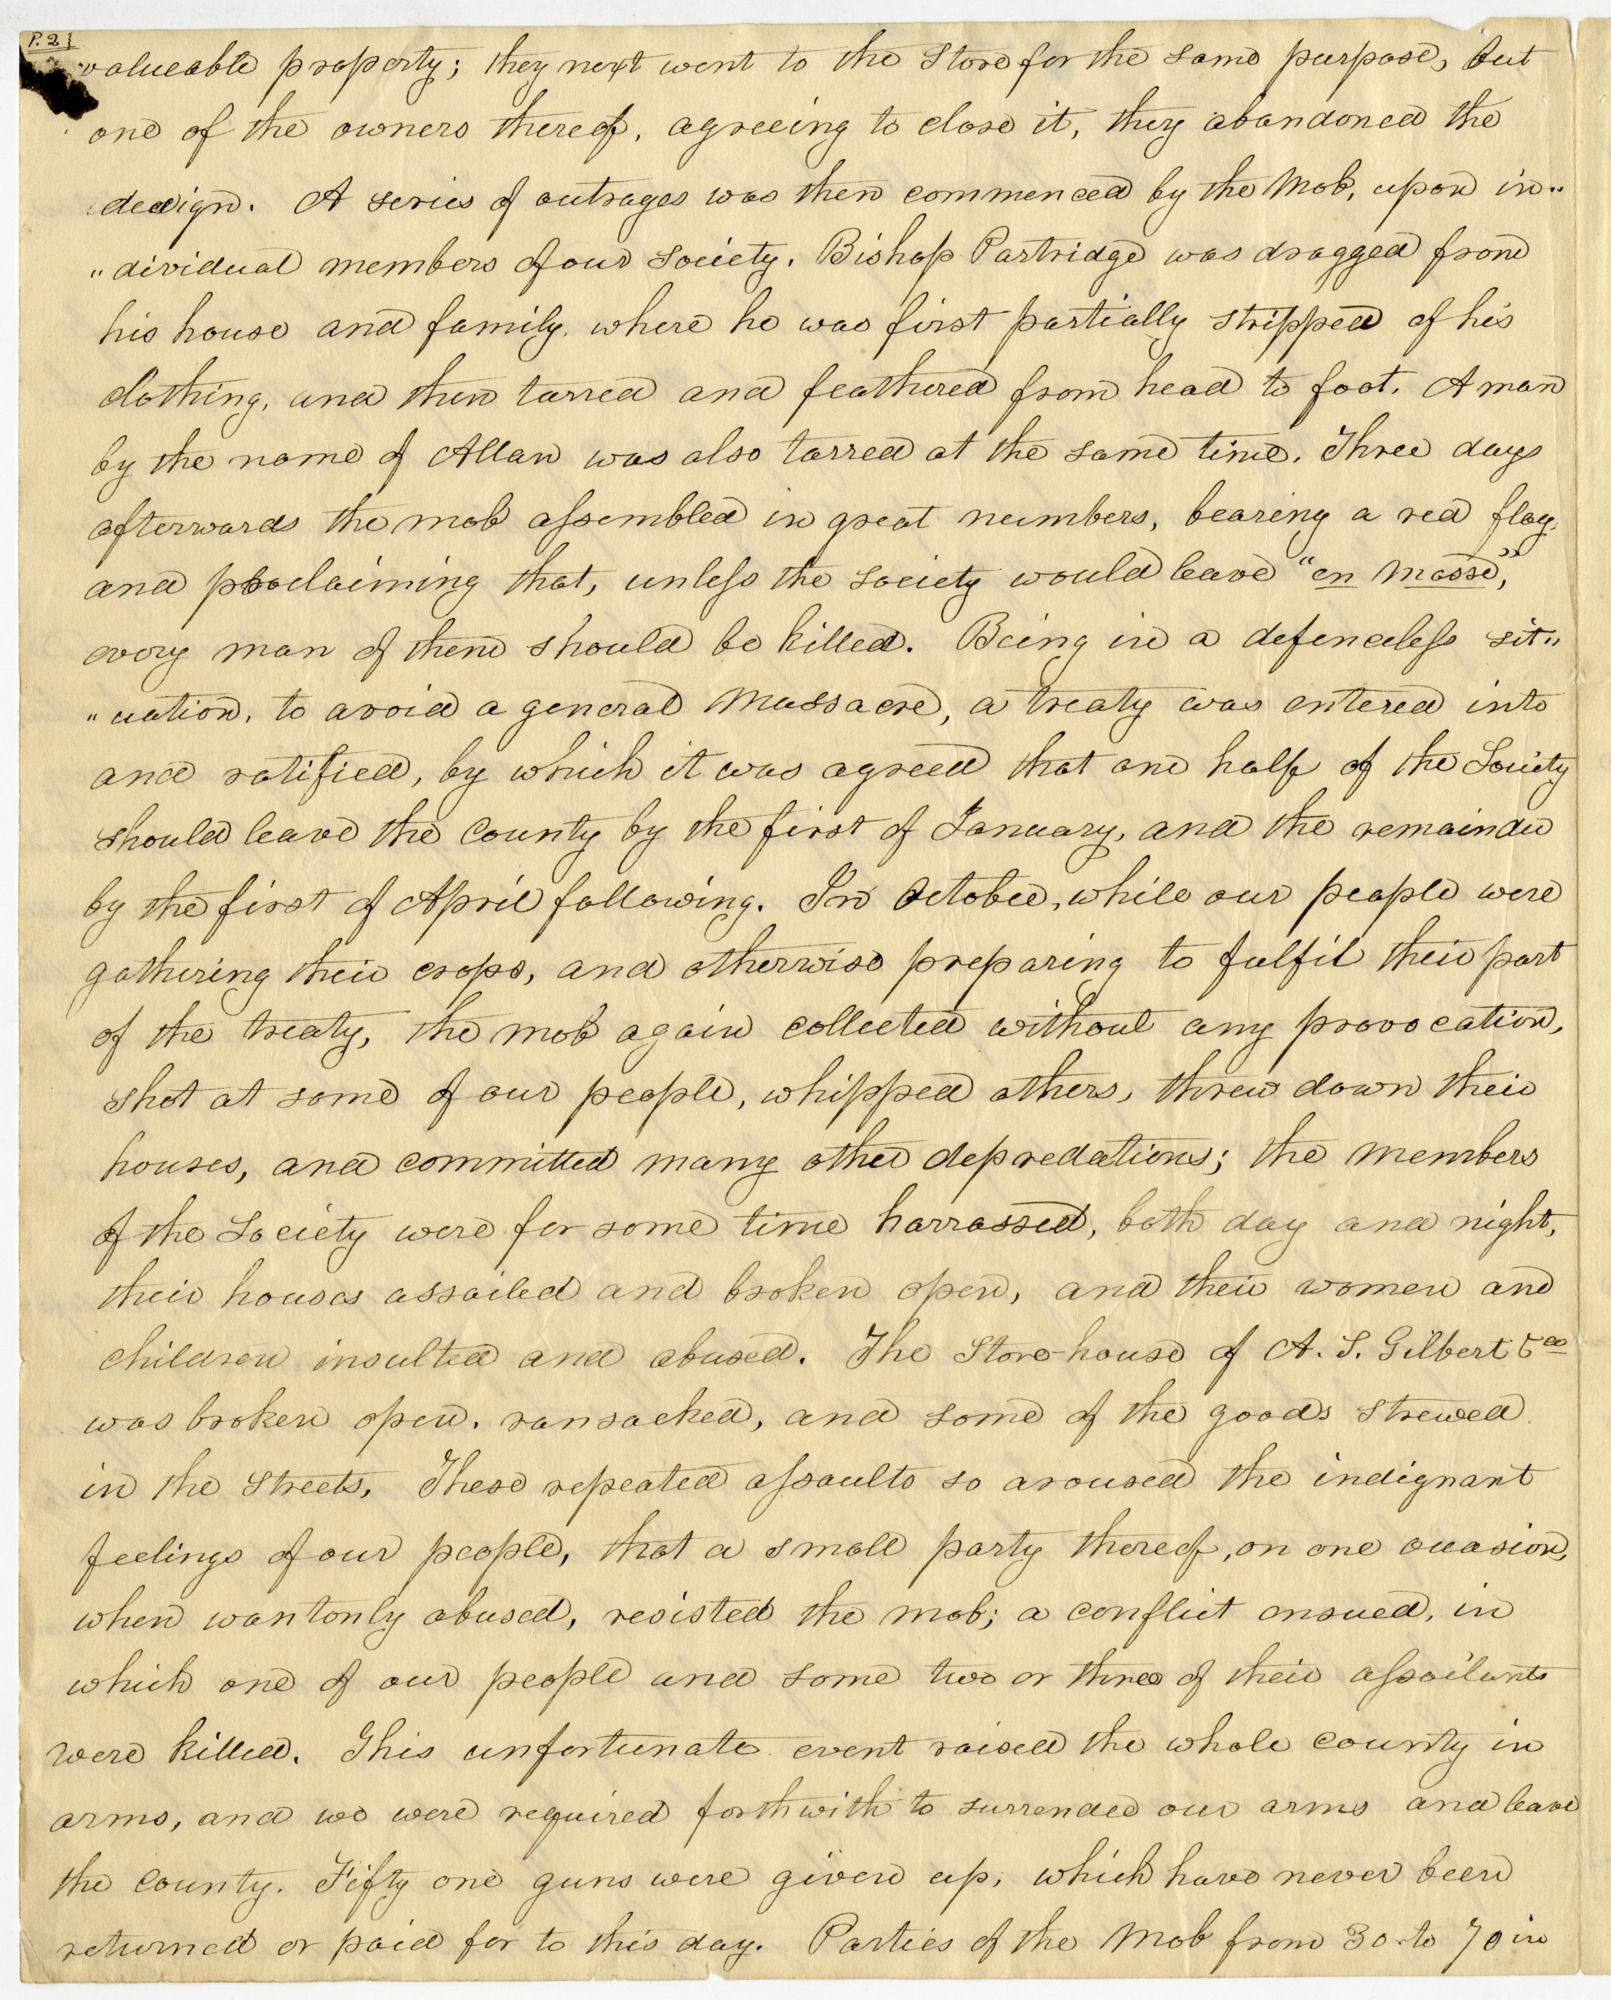 P. 2
valueable property; they next went to the Store for the same purpose, but
one of the owners thereof, agreeing to close it, they abandoned the
design. A series of outrages was then commenced by the Mob, upon in„
„dividual members of our Society. Bishop Partridge was dragged from
his house and family, where he was first partially stripped of his
clothing, and then tarred and feathered from head to foot. A man
by the name of Allan was also tarred at the same time. Three days
afterwards the mob assembled in great numbers, bearing a red flag,
and proclaiming that, unless the Society would leave "en masse",
every man of them should be killed. Being in a defenceless sit„
„uation, to avoid a general Massacre, a treaty was entered into
and ratified, by which it was agreed that one half of the Society
should leave the County by the first of January, and the remainder
by the first of April following. In October, while our people were
gathering their crops, and otherwise preparing to fulfil their part
of the treaty, the mob again collected without any provocation,
shot at some of our people, whipped others, threw down their
houses, and committed many other depredations; the members
of the Society were for some time harrassed, both day and night,
their houses assailed and broken open, and their women and
children insulted and abused. The Store-house of A. S. Gilbert & Co
was broken open, ransacked, and some of the goods strewed
in the Streets. These repeated assaults so aroused the indignant
feelings of our people, that a small party thereof, on one occasion,
when wantonly abused, resisted the mob; a conflict ensued, in
which one of our people and some two or three of their assailants
were killed. This unfortunate event raised the whole county in
arms, and we were required forthwith to surrender our arms and leave
the County. Fifty one guns were given up, which have never been
returned or paid for to this day. Parties of the Mob from 30 to 70 in